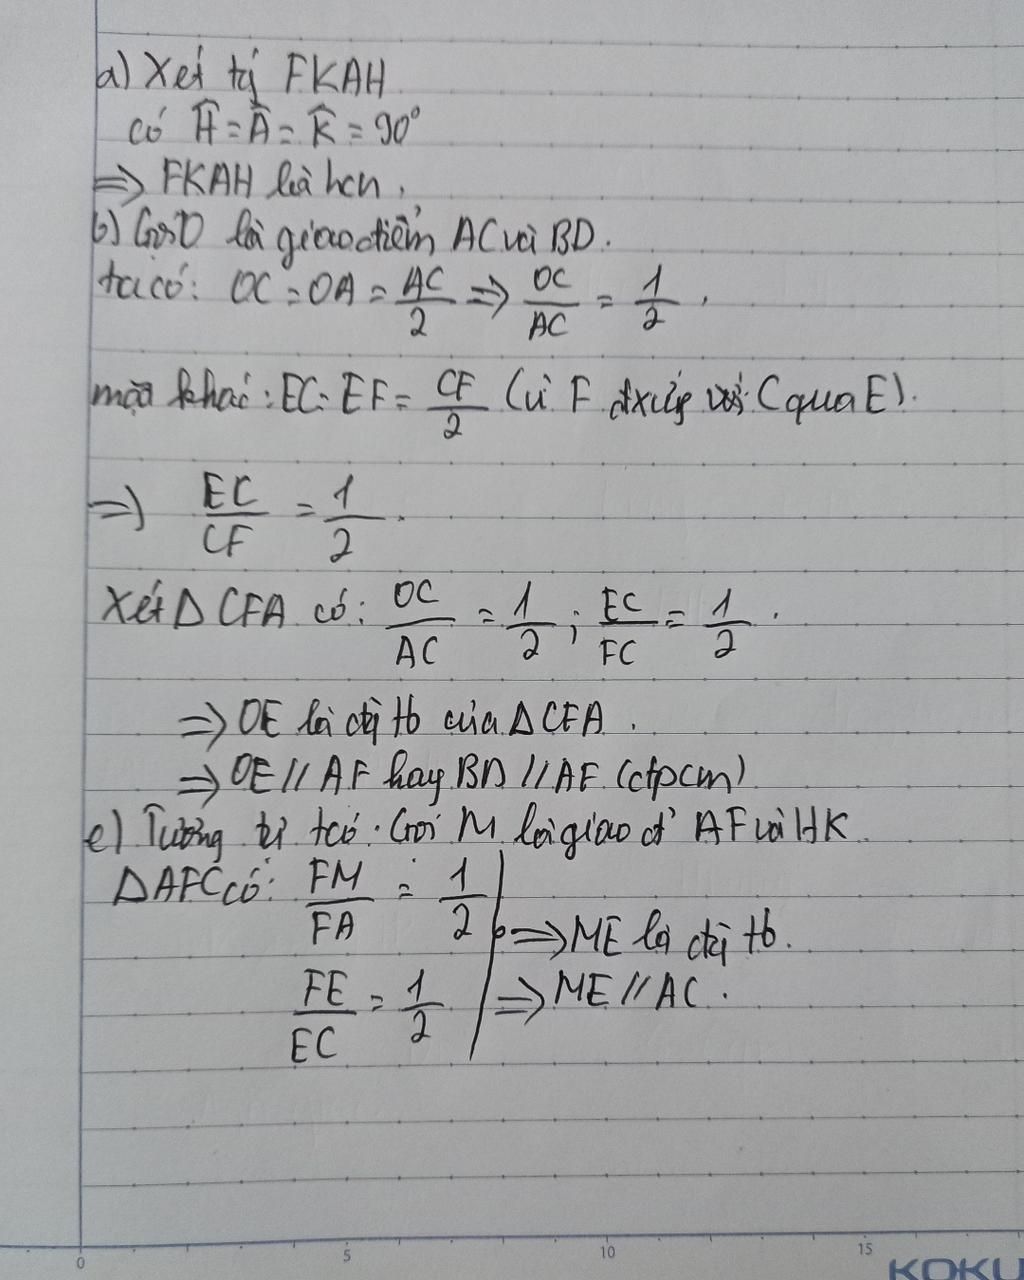 a) Xét tg FKAH
có Ĥ = Â = K̂ = 90°
=> FKAH là hcn.
b) Gọi O là giao điểm AC và BD.
ta có: OC = OA = AC/2 => OC/AC = 1/2.
mặt khác: EC = EF = CF/2 (vì F đxứng với C qua E).
=> EC/CF = 1/2.
Xét Δ CFA có: OC/AC = 1/2; EC/FC = 1/2.
=> OE là đg tb của Δ CFA.
=> OE // AF hay BD // AF (đpcm)
c) Tương tự tcó: Gọi M là giao đ' AF và HK.
Δ AFC có: FM/FA = 1/2
=> ME là đg tb.
FE/EC = 1/2 => ME // AC.
0 5 10 15
KOKU